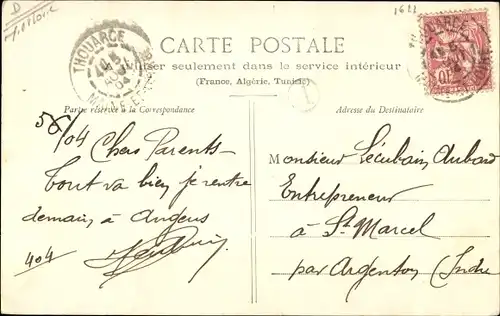 1622
D
THOUARCÉ
CARTE POSTALE
THOUARCÉ
utiliser seulement dans le service intérieur
(France, Algérie, Tunisie)
Partie réservée à la Correspondance
Adresse du Destinataire
5/6/04 Chers Parents
Tout va bien, je rentre
demain à Angers
404
Monsieur Lécubain Aubard
Entrepreneur
à St Marcel
par Argenton (Indre)
10